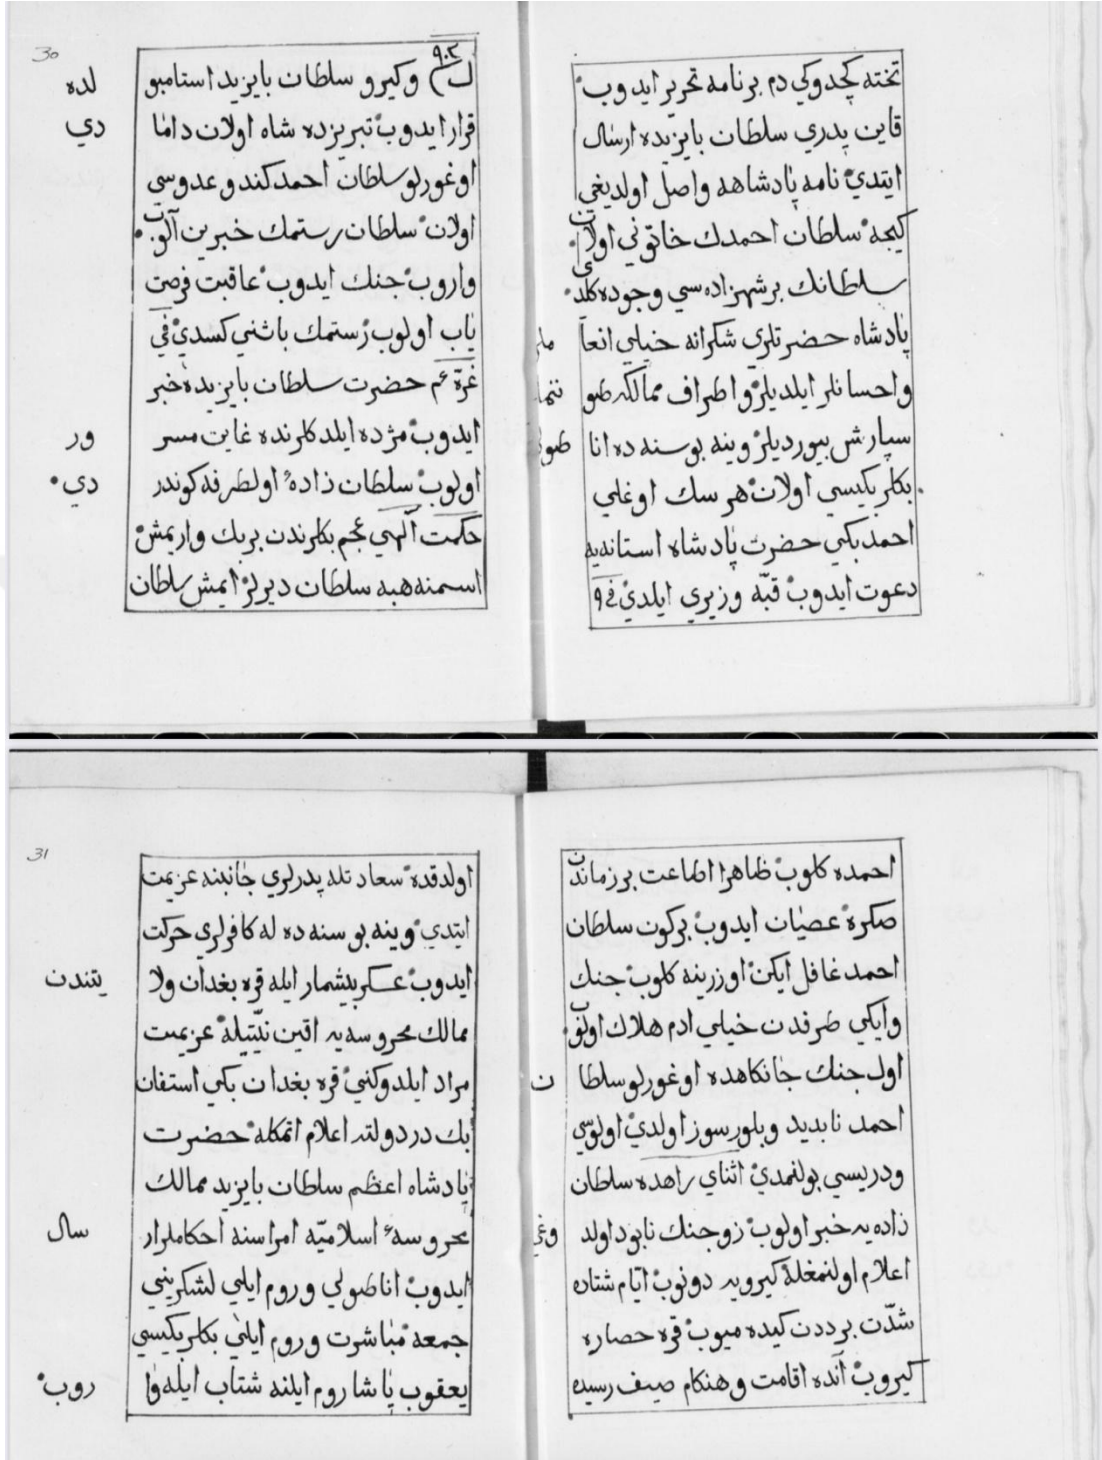 تخته كچدوكي دم برنامه تحرير ايدوب
قاين پدري سلطان بايزيده ارسال
ايتدي نامه پادشاهه واصل اولديغي
كيجه سلطان احمدك خاتوني اولان
سلطانك برشهزاده سي وجوده كلدي
پادشاه حضرتلري شكرانه خيلي انعا ملر
واحسانلر ايلديلر واطراف ممالكه طو ننما
سپارش بيورديلر وينه بوسنه ده انا طولي
بكلربكيسي اولان هرسك اوغلي
احمد بكي حضرت پادشاه استانه يه
دعوت ايدوب قبّه وزيري ايلدي في ٩
30
٩٠٢
ل) وكيرو سلطان بايزيد استامبو لده
قرار ايدوب تبريزده شاه اولان داما دي
اوغورلو سلطان احمد كندو عدوسي
اولان سلطان رستمك خبرين آلوب
واروب جنك ايدوب عاقبت فرصت
ياب اولوب رستمك باشني كسدي في
غرّة م حضرت سلطان بايزيده خبر
ايدوب مژده ايلدكلرنده غايت مسر ور
اولوب سلطان زاده ٔ اولطرفه كوندر دي
حكمت آلهي عجم بكلرندن بربك واريمش
اسمنه هبه سلطان ديرلر ايمش سلطان
احمده كلوب ظاهرا اطاعت برزماندن
صكره عصيان ايدوب بركون سلطان
احمد غافل ايكن اوزرينه كلوب جنك
وايكي طرفدن خيلي ادم هلاك اولوب
اول جنك جانكاهده اوغورلو سلطا ن
احمد نابديد وبلورسوز اولدي اولوسي
ودريسي بولنمدي اثناي راهده سلطان
زاده يه خبر اولوب زوجنك نابود اولد وغي
اعلام اولنمغله كيرويه دونوب ايّام شتاده
شدّت برددن كيده ميوب قره حصاره
كيروب آنده اقامت وهنكام صيف رسيده
31
اولدقده سعادتله پدرلري جانبنه عزيمت
ايتدي وينه بوسنه ده له كافرلري حركت
ايدوب عسكر بيشمار ايله قره بغدان ولا يتندن
ممالك محروسه يه اقين نيّتيله عزيمت
مراد ايلدوكني قره بغدان بكي استفان
بك دردولته اعلام اتمكله حضرت
پادشاه اعظم سلطان بايزيد ممالك
محروسه ٔ اسلاميّه امراسنه احكاملرار سال
ايدوب اناطولي وروم ايلي لشكريني
جمعه مباشرت وروم ايلي بكلربكيسي
يعقوب پاشا روم ايلنه شتاب ايله وا روب